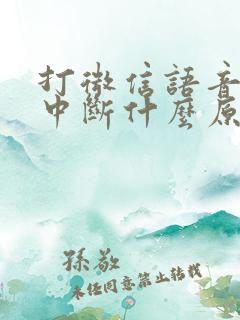 打微信語音
中斷什麼原
孫敬
未经同意禁止转载